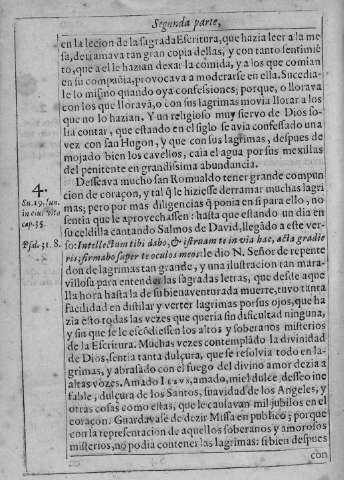 Segunda parte,
en la lecion de la sagrada Escritura, que hazia leer a la me
sa, derramava tan gran copia dellas, y con tanto sentimiē
to, que a el le hazian dexar la comida, y a los que comian
en su compañia, provocava a moderarse en ella. Sucedia-
le lo mismo quando oya confessiones; porque, o llorava
con los que lloravā, o con sus lagrimas movia llorar a los
que no lo hazian. Y un religioso muy siervo de Dios so-
lia contar, que estando en el siglo se avia confessado una
vez con san Hugon, y que con sus lagrimas, despues de
mojado bien los cavellos, caia el agua por sus mexillas
del penitente en grandissima abundancia.
Desseava mucho san Romualdo tener grande compun
cion de coraçon, y tal q̄ le hiziesse derramar muchas lagri
mas; pero por mas diligencias q̄ ponia en si para ello, no
sentia que le aprovechassen: hasta que estando un dia en
su celdilla cantando Salmos de David, llegādo a este ver-
so: Intellectum tibi dabo, & instruam te in via hac, qua gradie
ris; firmabo super te oculos meos: le dio N. Señor de repente
don de lagrimas tan grande, y una ilustracion tan mara-
villosa para entender las sagradas letras, que desde aque
lla hora hasta la de su bienaventurada muerte, tuvo tanta
facilidad en distilar y verter lagrimas por sus ojos, que ha
zia esto todas las vezes que queria sin dificultad ninguna,
y sin que se le escōdiessen los altos y soberanos misterios
de la Escritura. Muchas vezes contemplādo la divinidad
de Dios, sentia tanta dulçura, que se resolvia todo en la-
grimas, y abrasado con el fuego del divino amor dezia a
altas vozes. Amado IESVS, amado, miel dulce, desseo ine
fable, dulçura de los Santos, suavidad de los Angeles, y
otras cosas como estas, que le causavan mil jubilos en el
coraçon. Guardavase de dezir Missa en publico; porque
con la representacion de aquellos soberanos y amorosos
misterios, no podia contener las lagrimas: si bien despues
con
4.
cap. 35.
Psal. 31. 8.